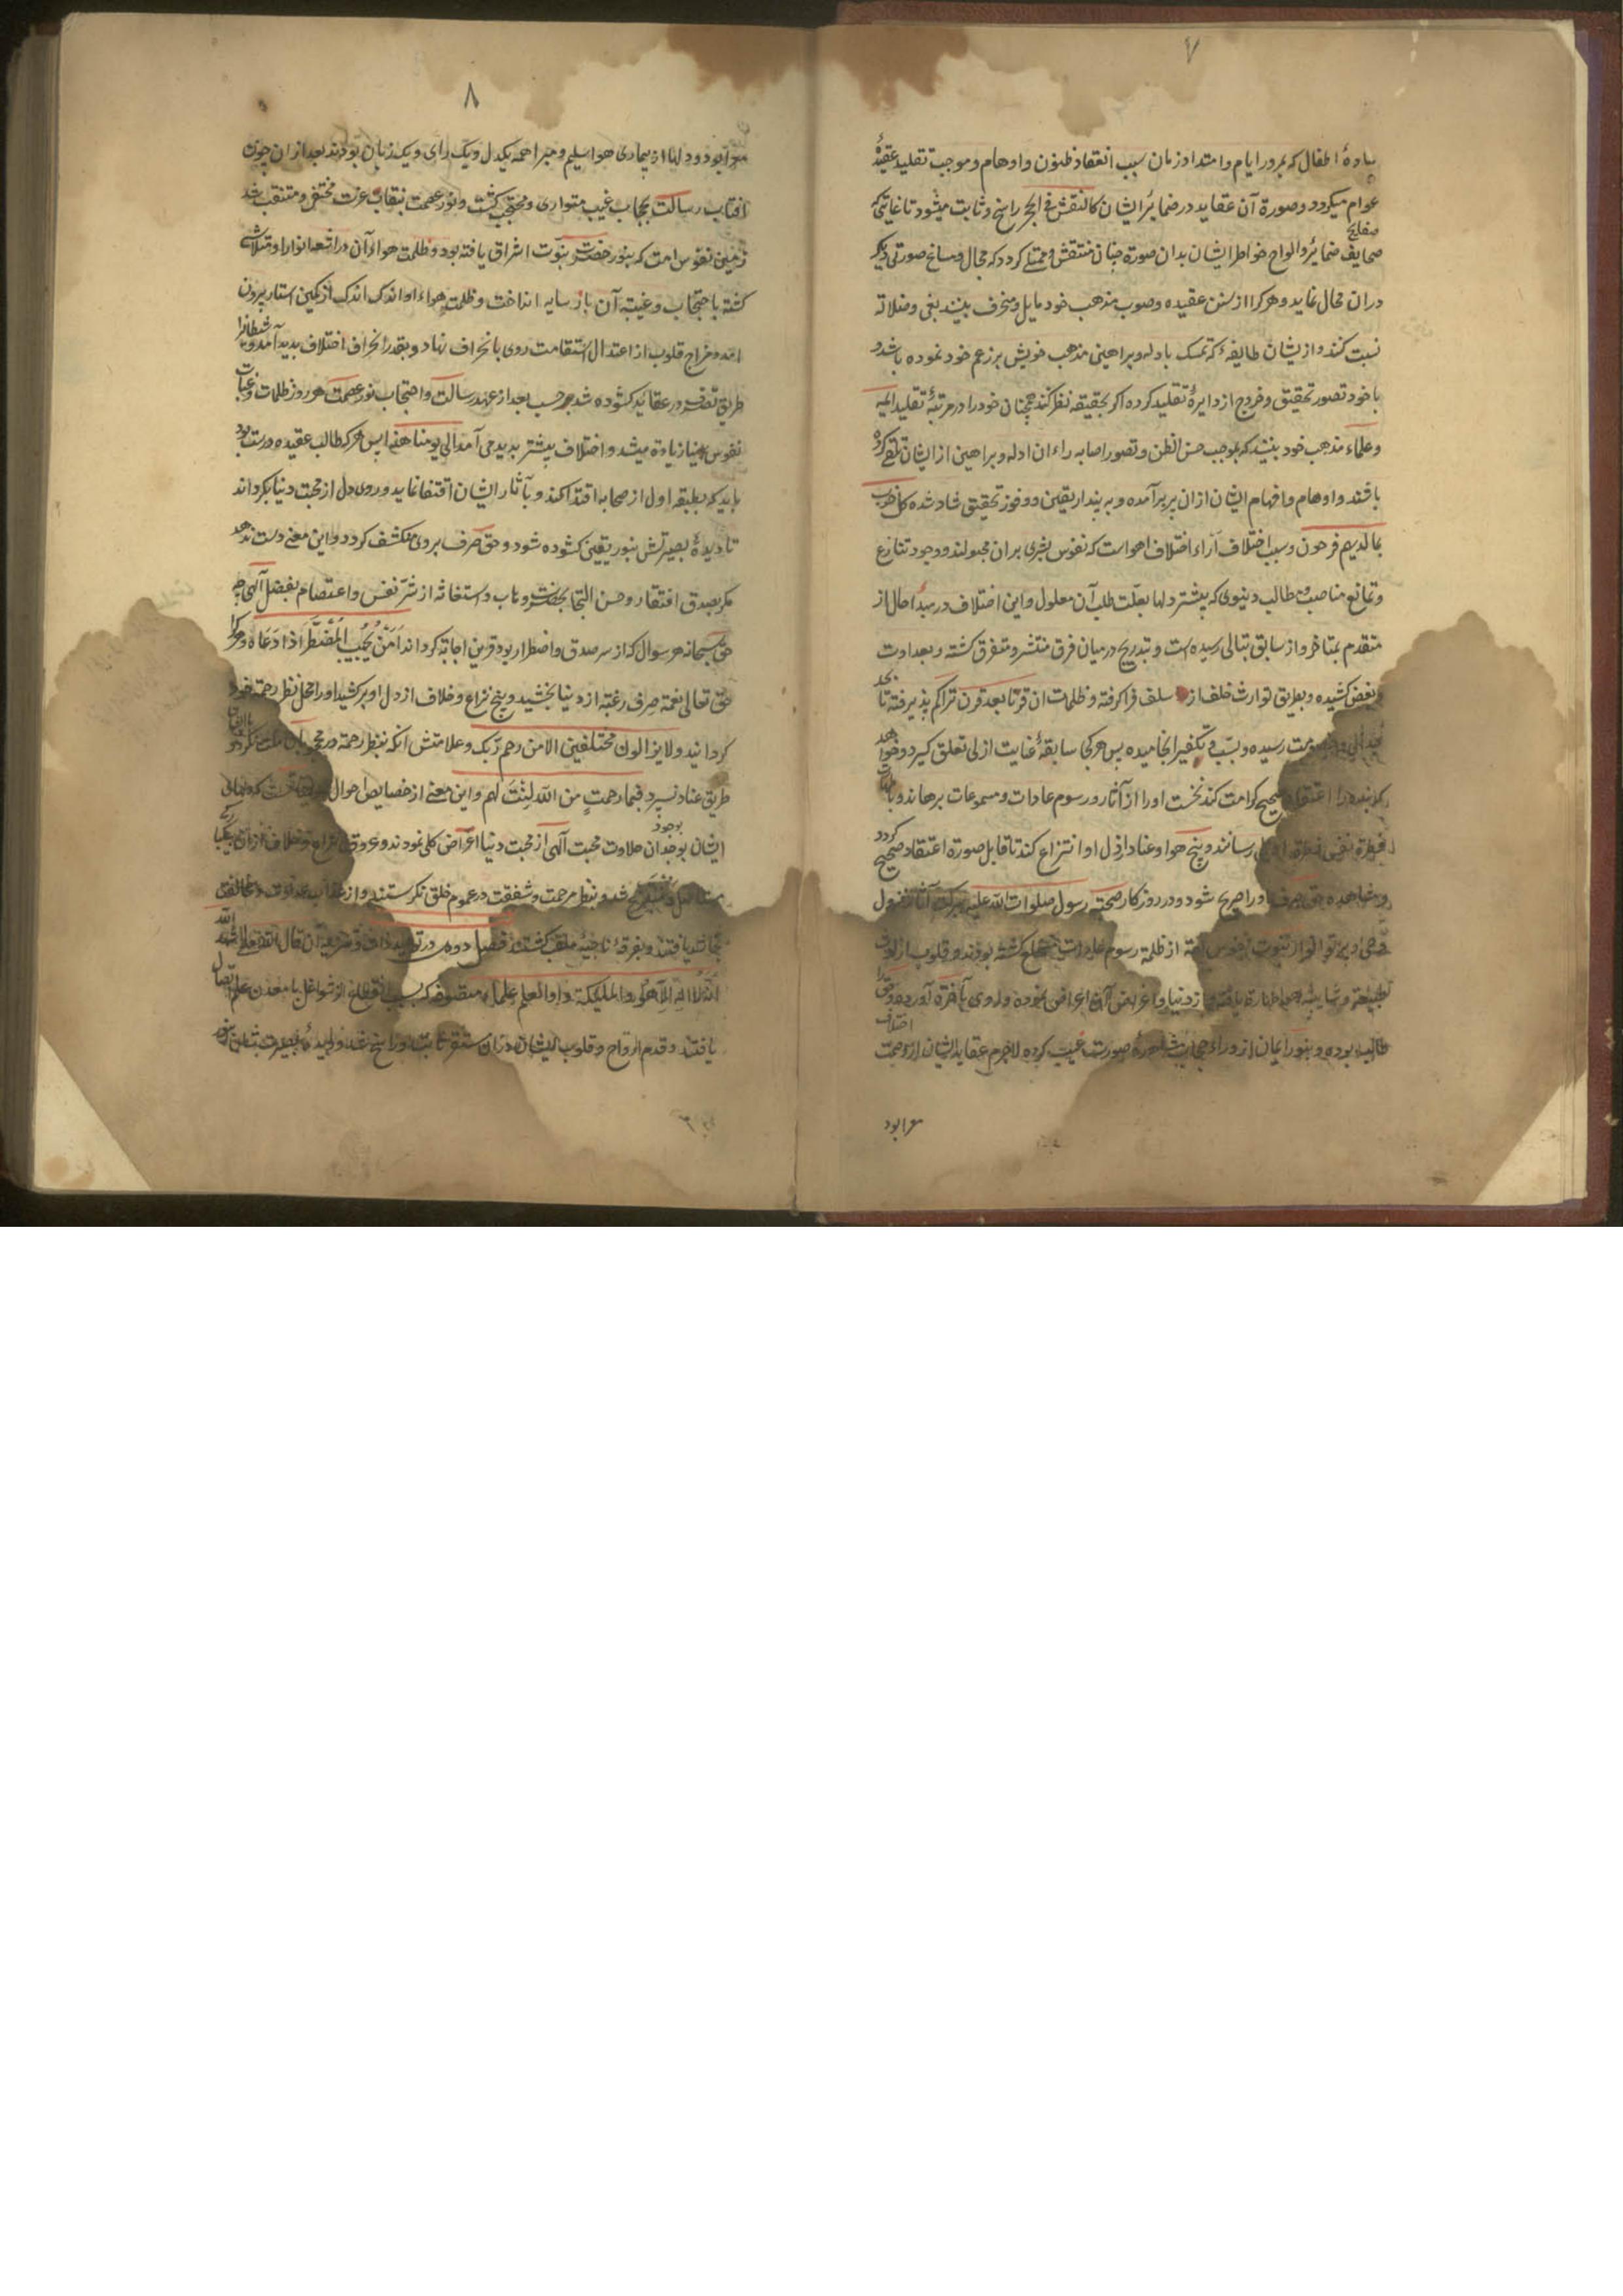 ۷
ساده اطفال که بمرور ایام و امتداد زمان سبب انعقاد ظنون و اوهام و موجب تقلید عقیدهٔ
عوام میکردد و صورة آن عقاید در ضمایر ایشان کالنقش فی الحجر راسخ و ثابت میشود تا غایتی که
صفایح
صحایف ضمایر و الواح خواطر ایشان بدان صورة چنان منتقش و ممتلی کردد که مجال و مساغ صورتی دیکر
دران محال نماید و هرکرا از سنن عقیده و صوب مذهب خود مایل و منحرف بینند بغی و ضلالة
نسبت کنند و از یشان طایفهٔ که تمسک بادله و براهین مذهب خویش بر زعم خود نموده باشد و
با خود تصور تحقیق و خروج از دایرهٔ تقلید کرده اکر بحقیقة نظر کند همچنان خود را در مرتبهٔ تقلید ایمه
و علماء مذهب خود بیند که بموجب حسن الظن و تصور اصابه راء ان ادله و براهین از ایشان تلقی کرده
باشند و اوهام و افهام ایشان ازان بر برآمده و به پندار یقین و فوز تحقیق شاد شده کل حزب
بما لدیهم فرحون و سبب اختلاف آراء اختلاف اهواست که نفوس بشری بران مجبولند و وجود تنازع
و تمانع مناصب و مطالب دنیوی که بیشتر دلها بعلّت طلب آن معلول و این اختلاف در مبدأ حال از
متقدم بمتاخر و از سابق بتالی رسیده است و بتدریج در میان فرق منتشر و متفرق کشته و بعداوت
و بغض کشیده و بطریق توارث خلف از سلف فرا کرفته و ظلمات ان قرنا بعد قرن تراکم پذیرفته تا بحد
رسیده و بسبّ و تکفیر انجامیده پس هرکجا سابقهٔ عنایت ازلی تعلق کیرد و خواهد
که بنده را اعتقاد صحیح کرامت کند نخست او را از آثار و رسوم عادات و مسموعات برهاند و با
فطرة رساند و بیخ هوا و عناد از دل او انتزاع کند تا قابل صورة اعتقاد صحیح کردد
و مشاهده حق صرف او را صریح شود و در روزکار صحبة رسول صلوات الله علیه ببرکة آثار نزول
وحی و پرتو انوار نبوت نفوس امة از ظلمة رسوم عادات منخلع کشته بودند و قلوب از لوث
طبیعة و شایبهٔ هوا طهارة یافته و از دنیا و اغراض آن اعراض نموده و روی بآخرة آورده و حق را
طالب بوده و بنور ایمان از وراء حجاب مشاهدهٔ صورت غیب کرده لاجرم عقاید ایشان از وصمت اختلاف
معرا بود
۸
معرا بود و دلها از بیماری هوا سلیم و مبرا همه یکدل و یک رای و یک زبان بودند بعد ازان چون
افتاب رسالت بحجاب غیب متواری و محتجب کشت و نور عصمت بنقاب عزت مختفی و متنقب شد
زمین نفوس امت که بنور حضرت نبوت اشراق یافته بود و ظلمت هواء آن در اشعهٔ انوار او متلاشی
کشته باحتجاب و غیبة آن باز سایه انداخت و ظلمت هواء او اندک اندک از کمین استار بیرون
امد و مزاج قلوب از اعتدال استقامت روی بانحراف نهاد و بقدر انحراف اختلاف پدید آمد و شیطانرا
طریق تصرف در عقاید کشوده شد بر حسب بعد از عهد رسالت و احتجاب نور عصمت هر روز ظلمات و غیاب
نفوس زیادة میشد و اختلاف بیشتر پدید می آمد الی یومنا هذا پس هرکه طالب عقیده درست بود
باید که بطبقه اول از صحابه اقتدا کند و بآثار ایشان اقتفا نماید و روی دل از محبت دنیا بکرداند
تا دیدهٔ بصیرتش بنور یقین کشوده شود و حق صرف بروی منکشف کردد و این معنی دست ندهد
مکر بصدق افتقار و حسن التجا بحضرت وهاب و استغاثه از شرّ نفس و اعتصام بفضل آلهی چه
حق سبحانه هر سوال که از سر صدق و اضطرار بود قرین اجابة کرداند اَمَّنْ یُجیبُ المُضْطَرَّ اِذا دَعَاهُ و هرکرا
حق تعالی نعمة صرف رغبة از دنیا بخشید و بیخ نزاع و خلاف از دل او برکشید او را محل نظر رحمة خود
کردانید ولا یزالون مختلفین الا من رحم ربّک و علامتش انکه بنظر رحمة در
طریق عناد نسپرد فبما رحمتٍ من الله لِنْتَ لهم و این معنی از خصایص احوال
ایشان بوجدان حلاوت محبت آلهی از محبت دنیا اعراض کلی نمودند و عروق نزاع و خلاف ازان بکلی
شد و بنظر مرحمت و شفقت در عموم خلق نکرستند و از عداوت و مخالفت
نجات یافتند و بفرقهٔ ناجیه ملقب کشتند فصل دوم در توحید ذات قال الله تعالی شهد الله
انه لا اله الا هو و الملیکة و اولو العلم علماء متصوفه که بسبب انقطاع از شواغل با معدن علم اتصال
یافتند و قدم ارواح و قلوب ایشان دران مستقر ثابت و راسخ شد و دیدهٔ بصیرت شان بنور